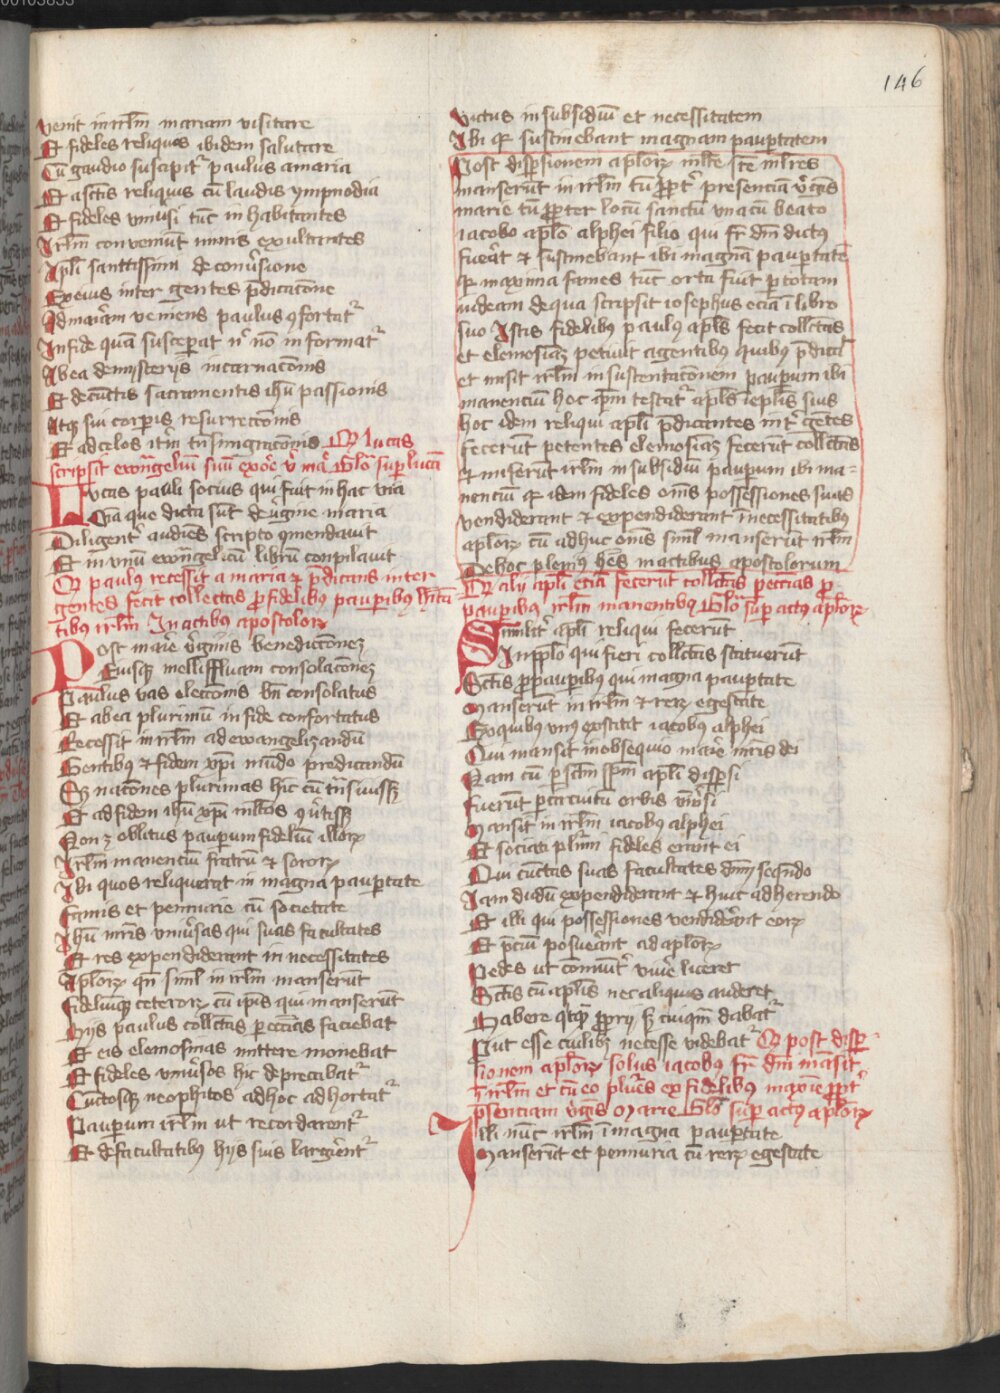 00103855
146
venit in irlm mariam visitare
Et fideles reliquos ibidem salutare
Cu gaudio suscipit paulus a maria
Et a sctis reliquis cu laudis ympnodia
Et fideles vniuersi tuc in habitantes
Irlm conveniut nimis exultantes
Apli santtissimi de conversione
Et eius inter gentes pdicacone
Ad maria veniens paulus 9fortat
In fide qua susceperat nō informat
Ab ea de misterijs incarnaconis
Et de cunctis sacramentis ihu passionis
Atq sui corporis resurrectionis
Et ad celos itm transmigraconis Q lucas
scripsit ewangeliu suu Glo super luca
Lucas pauli socius qui fuit in hac via
Oia que dicta sut de virgine maria
Diligent audies scripto 9mendauit
Et in vnu ewangelicu libru conpilauit
Q paulus recessit a maria et pdicans inter
gentes fecit collectas p fidelibus pauperibus
tibus irlm In actibus apostolor
Post marie virginis benediccionez
Eiusq mellifluam consolaconez
Paulus vas eleccionis bn consolatus
Et ab ea plurimu in fide confortatus
Recessit in irlm ad ewangelizandu
Gentibus et fidem xpi mudo predicandu
Et nacones plurimas hic cu transiuisset
Et ad fidem ihu xpi mltos
Non oblitus pauperum fideliu illor
Irlm manenciu fratru et soror
Ibi quos reliquerat in magna paupertate
famis et pennurie cu societate
Ihu mris vniuersas qui suas facultates
Et res expendiderant in necessitates
Aplor qn siml in irlm manserut
fideliuq ceteror cu ipis qui manserut
Hijs paulus collectas p ecclias faciebat
Et eis elemosinas mittere monebat
Et fideles vniuersos hic deprecabat
Cuctosq neophitos ad hoc adhortat
Pauperum irlm ut recordarent
Et de facultatibus hijs suis largirent
victus in subsidiu et necessitatem
Ibi qr sustinebant magnam paupertatem
Post dispersionem aplor mlte scte mlres
manserut in irlm tu ppter presenciam virginis
marie tu ppter locu sanctu vna cu beato
iacobo aplo alphei filio qui fr dni dictus
fuerat et sustinebant ibi magna paupertate
qr maxima fames tuc orta fuit p totam
iudeam de qua scripsit iosephus ecia i libro
suo Istis fidelibus paulus apls fecit collectas
et elemosinas petiuit a gentibus quibus pdicat
et misit irlm in sustentaconem pauperum ibi
manenciu hoc ipm testat apls i eplis suis
hoc idem reliqui apli pdicantes int gentes
fecerut petentes elemosinas fecerut collectas
et miserut irlm in subsidiu pauperum ibi ma=
nenciu qr idem fideles oms possessiones suas
vendiderant et expendiderant in necessitatibus
aplor cu adhuc oms siml manserut irlm
De hoc plenius hes in actibus apostolorum
Q alij apli ecia fecerut collectas p ecclias p
pauperibus irlm manentibus Glo super actus aplor
Similit apli reliqui fecerut
In pplo qui fieri collectas statuerut
Sctis p pauperibus qui magna paupertate
Manserut in irlm et rerz egestate
Ex quibus vnus exstitit iacobus alphei
Qui mansit in obsequio marie mris dei
Nam cu p sctm spm apli dispersi
fuerut p circuitu orbis vniversi
Mansit in irlm iacobus alphei
Et sociati plurimi fideles erant ei
Qui cunctas suas facultates dnm sequendo
Iam dudu expendiderant et huic adherendo
Et illi qui possessiones vendiderant eorz
Et pciu posuerant ad aplorz
Pedes ut comunit viuere liceret
Sctis cu aplis nec aliquis auderet
Habere ppry sed cuiqm dabat
Put esse cuilibet necesse videbat Q post disper
sionem aplorz solus iacobus fr dni mansit
i irlm et cu eo plures ex fidelibus maxime ppt
psentiam virginis Marie Glo super actus aplorz
Illi nuc irlm i magna paupertate
Manserut et pennuria cu rerz egestate